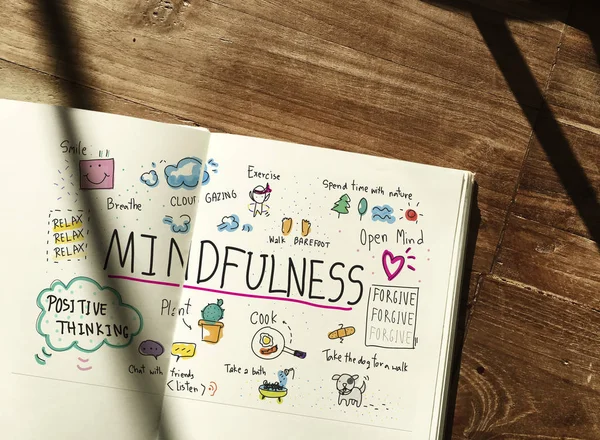 Smile
Breathe
CLOUD GAZING
Exercise
Spend time with nature
Walk BAREFOOT
Open Mind
RELAX
RELAX
RELAX
MINDFULNESS
POSITIVE
THINKING
Plant
Cook
FORGIVE
FORGIVE
FORGIVE
Chat with friends
<listen>
Take a bath
Take the dog for a walk